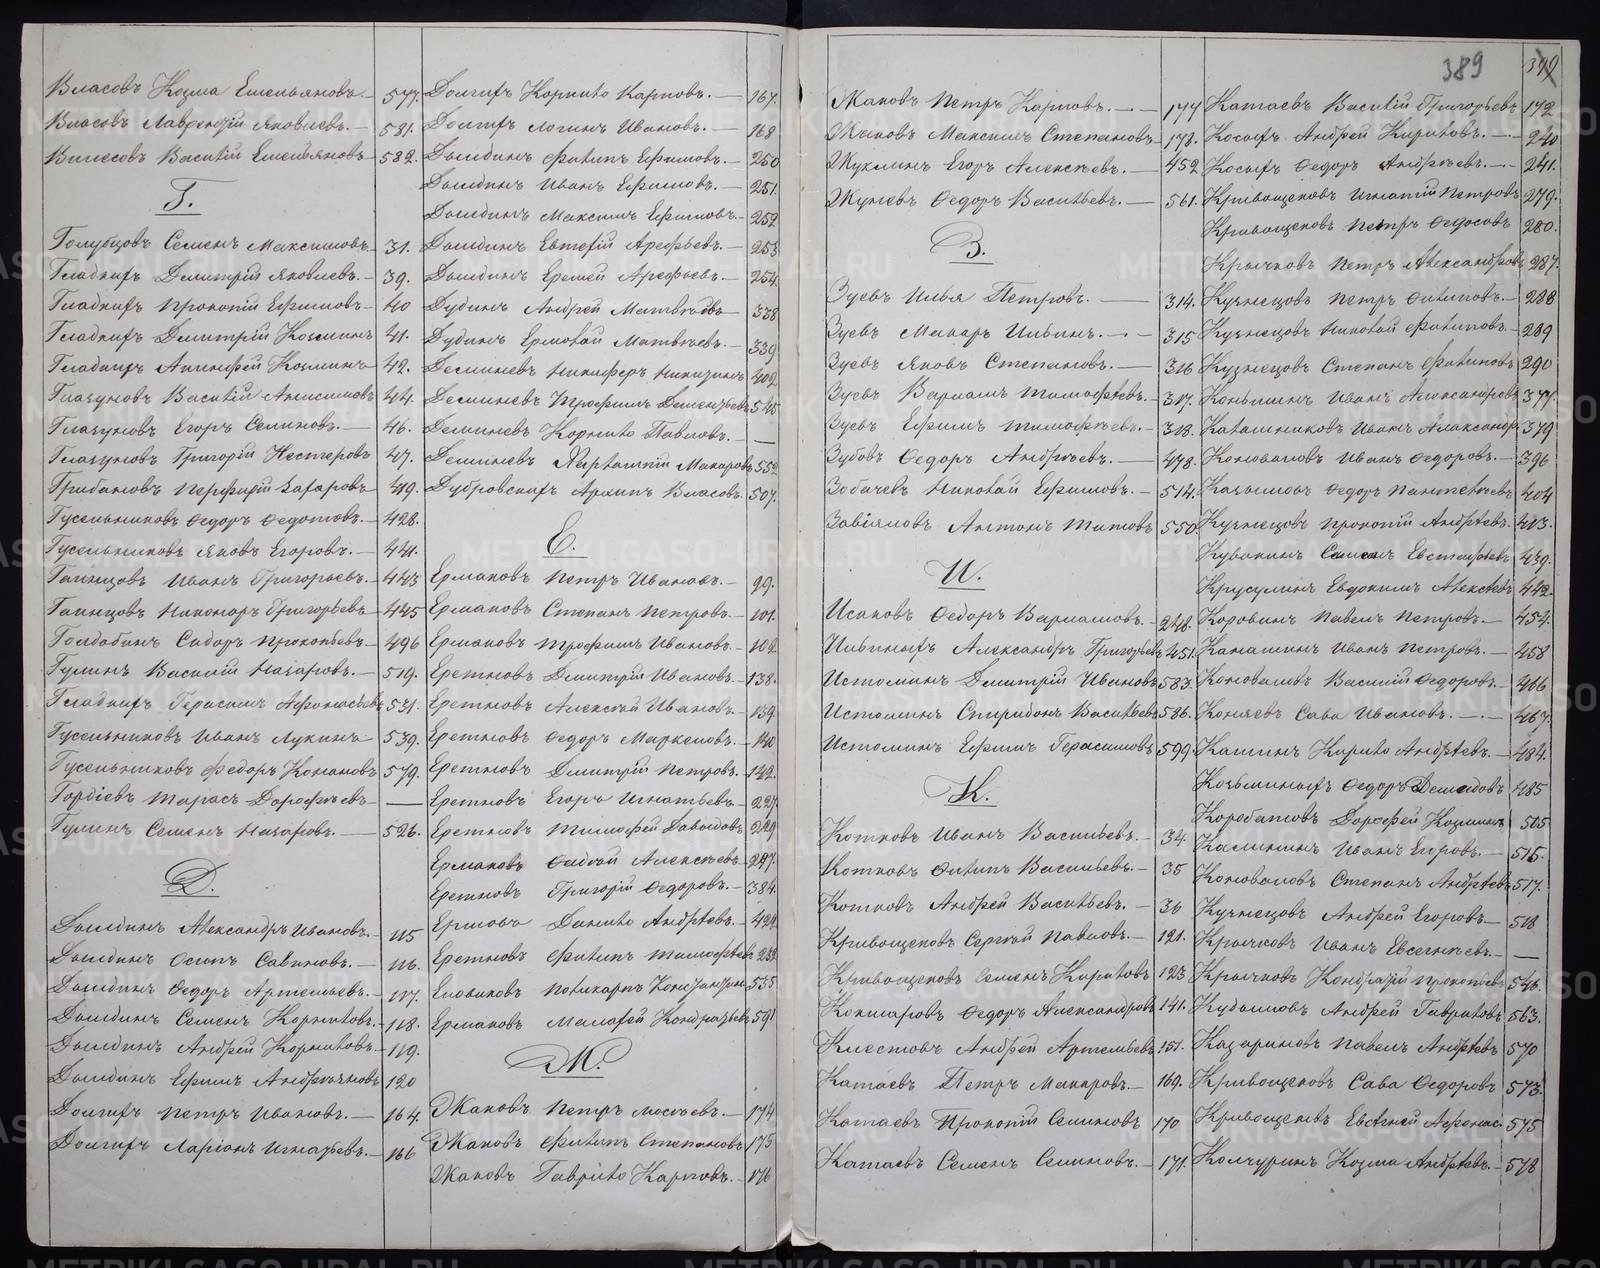 Власовъ Козма Емельяновъ 577.
Власовъ Лаврентій Яковлевъ. — 581.
Василій Емельяновъ — 582.
Г.
Голубцовъ Семенъ Максимовъ. 31.
Гладкихъ Дмитрій Яковлевъ. — 39.
Гладкихъ Прокопій Ефимовъ — 40
Гладкихъ Дмитрій Козминъ 41.
Гладкихъ Козминъ — 42.
Глазуновъ Василій Анисимовъ 44.
Глазуновъ Егоръ Семеновъ. — 46.
Глазуновъ Григорій Нестеровъ 47.
Грибановъ Перфирій Захаровъ 419.
Гусельниковъ Ѳедоръ Ѳедотовъ. — 428.
Гусельниковъ Яковъ Егоровъ. — 441.
Галицовъ Иванъ Григорьевъ. — 443
Галицовъ Никоноръ Григорьевъ — 445
Голдобинъ Сидоръ Прокопьевъ. 496
Гулинъ Василій Назаровъ. — 519.
Гладкихъ Герасимъ Афонасьевъ 531.
Гусельниковъ Иванъ Лукинъ — 539.
Гусельниковъ Федоръ Кононовъ 579.
Гордѣевъ Тарасъ Дорофѣевъ —
Гулинъ Семенъ Назаровъ. — 526.
Д.
Дылдинъ Александръ Ивановъ. 115
Дылдинъ Осипъ Савиновъ. — 116.
Дылдинъ Ѳедоръ Артемьевъ. — 117.
Дылдинъ Семенъ Корниловъ. — 118.
Дылдинъ Андрей Корниловъ — 119.
Дылдинъ Ефимъ Андреяновъ 120
Долгихъ Петръ Ивановъ. — 164.
Долгихъ Ларіонъ Игнатьевъ. — 166
Долгихъ Корнило Карповъ. — 167.
Долгихъ Логинъ Ивановъ. — 168
Дылдинъ Филипъ Ефимовъ. — 250
Дылдинъ Иванъ Ефимовъ. — 251.
Дылдинъ Максимъ Ефимовъ — 252
Дылдинъ Евтефій Арефьевъ. — 253
Дылдинъ Еремей Арефьевъ. — 254.
Дудинъ Андрей Матвѣевъ 338
Дудинъ Ермолай Матвѣевъ. — 339
Деминевъ Никифоръ 402.
Деминевъ Трофимъ Дементьевъ 545
Деминевъ Корнило Павловъ. — —
Деминевъ Макаровъ 552
Дубровскихъ Архипъ Власовъ. 507.
Е.
Ермаковъ Петръ Ивановъ. — 99.
Ермаковъ Степанъ Петровъ. — 101.
Ермаковъ Трофимъ Ивановъ. — 102.
Еретновъ Дмитрій Ивановъ. — 138.
Еретновъ Алексѣй Ивановъ. — 139.
Еретновъ Ѳедоръ Маркеловъ. — 140
Еретновъ Дмитрій Петровъ. — 142.
Еретновъ Егоръ Игнатьевъ. — 227.
Еретновъ Тимофей Давыдовъ 229
Ермаковъ Фадѣй Алексѣевъ — 297.
Еретновъ Григорій Ѳедоровъ. — 384.
Ершовъ Данило Андрѣевъ. — 422.
Еретновъ Филипъ Тимофѣевъ
Еловиковъ Поликарпъ 535
Ермаковъ Малафей Кондратьевъ 591
Ж.
Жаковъ Петръ — 174
Жаковъ Филипъ Степановъ 175
Жаковъ Гаврило Карповъ. — 176
389
Жаковъ Петръ Карповъ. — 177
Жаковъ Максимъ Степановъ 178.
Жуклинъ Егоръ Алексѣевъ. — 452.
Жуневъ Ѳедоръ Васильевъ. — 561.
З.
Зуевъ Илья Петровъ. — 314.
Зуевъ Макаръ Ильинъ. — 315
Зуевъ Яковъ Степановъ. — 316
Зуевъ Варламъ Тимофѣевъ. — 317.
Зуевъ Ефимъ Тимофѣевъ. — 318.
Зубовъ Ѳедоръ Андрѣевъ. — 478.
Зобачевъ Николай Ефимовъ. — 514.
Завіяловъ Антонъ Титовъ 550
И.
Исаковъ Ѳедоръ Варламовъ. — 248.
Ильиныхъ Александръ Григорьевъ 451.
Истоминъ Дмитрій Ивановъ 583.
Истоминъ Спиридонъ Васильевъ 586.
Истоминъ Ефимъ Герасимовъ 599
К.
Котковъ Иванъ Васильевъ. — 34.
Котковъ Филипъ Васильевъ. — 35
Котковъ Андрей Васильевъ. — 36
Кривощековъ Сергѣй Павловъ. — 121.
Кривощековъ Семенъ Кириловъ 123
Кокшаровъ Ѳедоръ Александровъ 141.
Клестовъ Андрей Артемьевъ 151.
Катаевъ Петръ Макаровъ. — 169.
Катаевъ Прокопій Семеновъ 170
Катаевъ Семенъ Семеновъ. — 171.
Катаевъ Василій Григорьевъ 172
Косыхъ Андрей Кириловъ. — 240
Косыхъ Ѳедоръ Андрѣевъ. — 241.
Кривощековъ Игнатій Петровъ 279.
Кривощековъ Петръ Ѳедосовъ 280.
Крычковъ Петръ Александровъ 287.
Кузнецовъ Петръ Филиповъ. — 288
Кузнецовъ Николай Филиповъ. — 289
Кузнецовъ Степанъ Филиповъ 290
Коньшинъ Иванъ Александровъ 377.
Калашниковъ Иванъ Александр. 379
Коноваловъ Иванъ Ѳедоровъ. — 396
Казымовъ Ѳедоръ Пантелѣевъ 404
Кузнецовъ Прокопій Андрѣевъ. 413.
Кувакинъ Семенъ Евстафьевъ 439.
Евдокимъ Алексѣевъ 442.
Коровинъ Павелъ Петровъ. — 454.
Канашинъ Иванъ Петровъ. — 458
Коноваловъ Василій Ѳедоровъ. — 466
Коняевъ Сава Ивановъ. — 467.
Кашинъ Кирило Андрѣевъ. — 484.
Козьминыхъ Ѳедоръ Демидовъ 485
Коробатовъ Дорофей Козминъ 505
Калинкинъ Иванъ Егоровъ. — 515.
Коноваловъ Степанъ Андрѣевъ 517.
Кузнецовъ Андрей Егоровъ — 518
Крычковъ Иванъ Евсеньевъ. — —
Крычковъ Кондратій Прокопьевъ 546.
Кудымовъ Андрей Гавриловъ 563.
Казариновъ Павелъ Андрѣевъ 570
Кривощековъ Сава Ѳедоровъ 573.
Кривощековъ Евсѣней Афонас. 575
Колчуринъ Козма Андрѣевъ. — 578